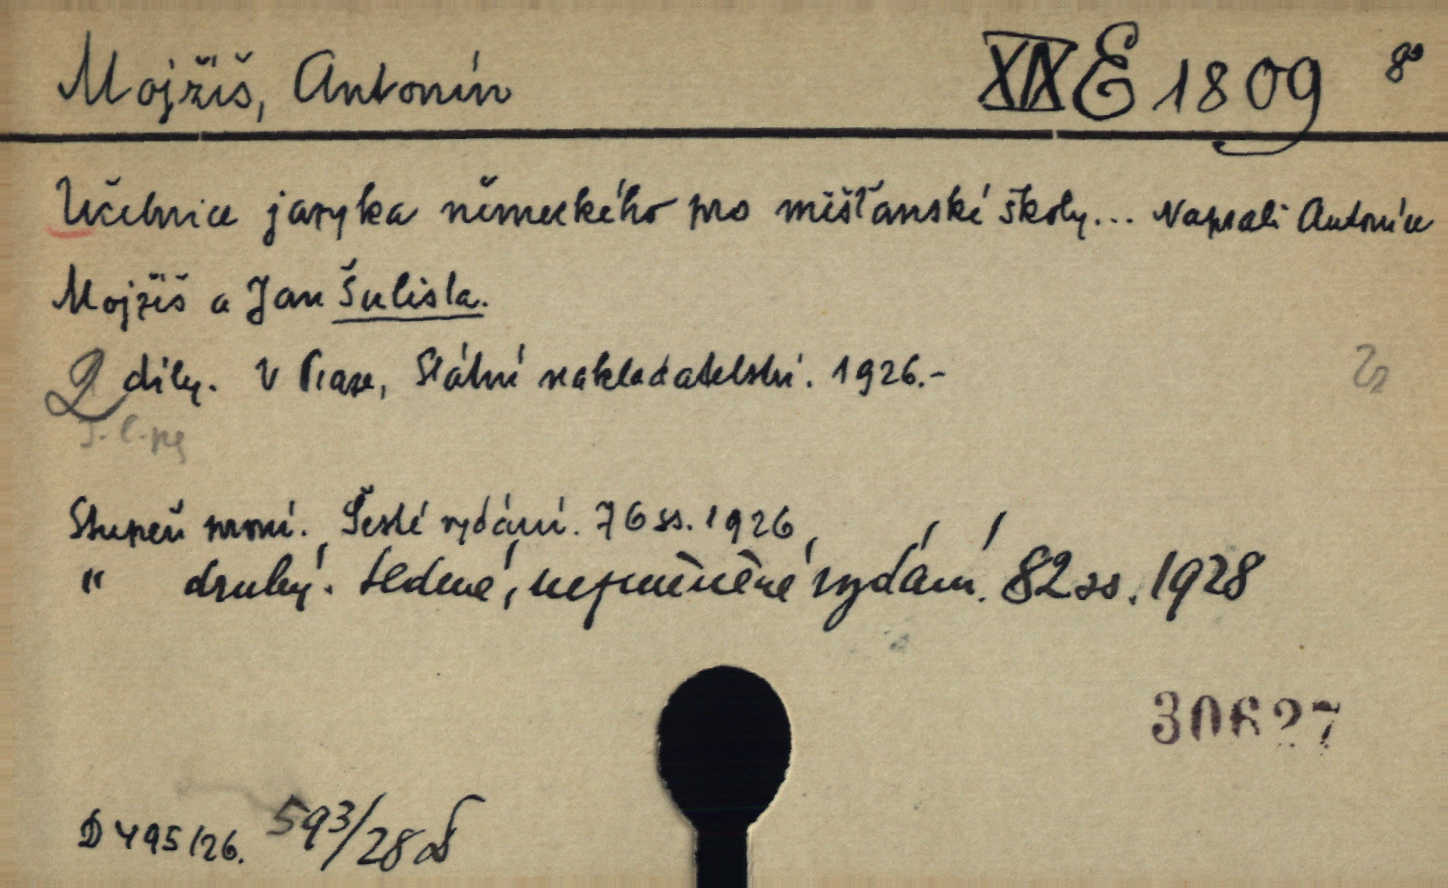 Mojžíš, Antonín XIX E 1809 8°
Učebnice jazyka německého pro měšťanské školy... Napsali Antonín
Mojžíš a Jan Šulista.
2 díly. V Praze, Státní nakladatelství. 1926.-
Stupeň první. Šesté vydání. 76 ss. 1926,
" druhý. Sedmé, nezměněné vydání. 82 ss. 1928
30627
D 495/26. 593/28 D